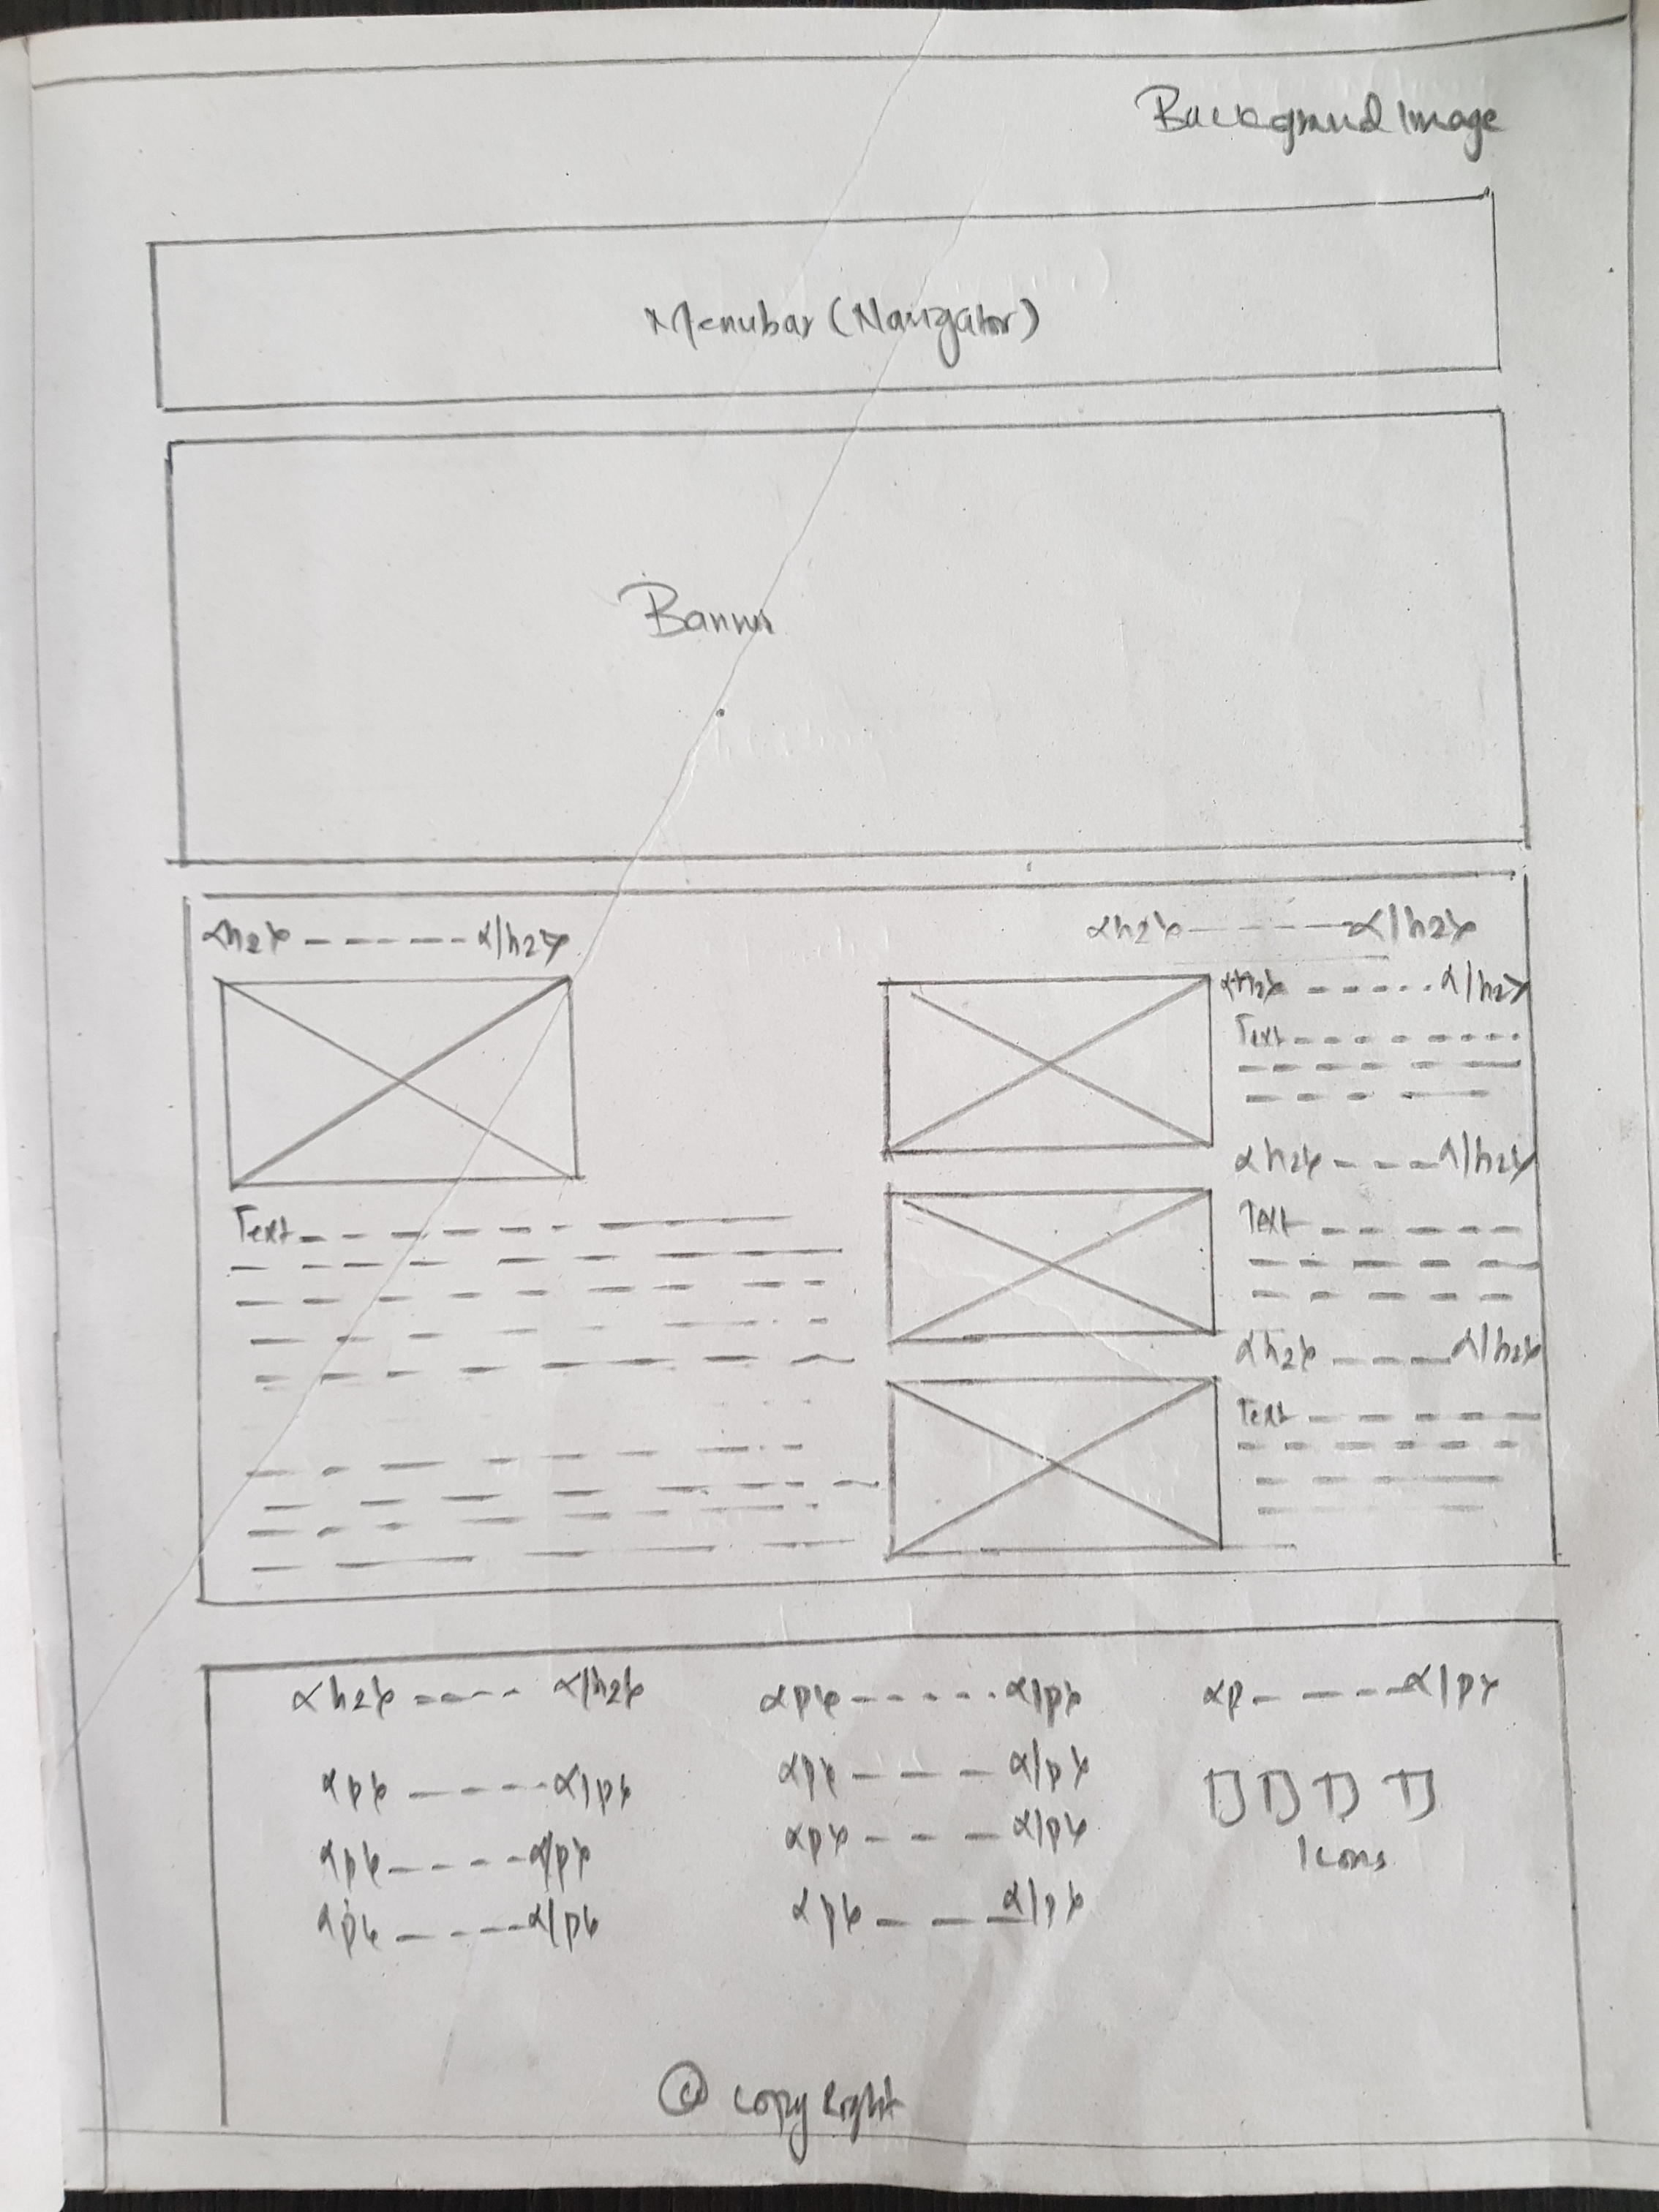 Background Image
Menubar (Navigator)
Banner
<h2> - - - - - </h2>
<h2> - - - - </h2>
<h2> - - - - - </h2>
Text - - - - - - -
<h2> - - - </h2>
Text - - - - - - - -
Text - - - - -
<h2> - - - </h2>
Text - - - - -
<h2> - - - - </h2>
<p> - - - - - </p>
<p - - - - </p>
<p> - - - - </p>
<p> - - - </p>
<p> - - - - </p>
<p> - - - </p>
Icons
<p> - - - - </p>
<p> - - - </p>
© Copy Right